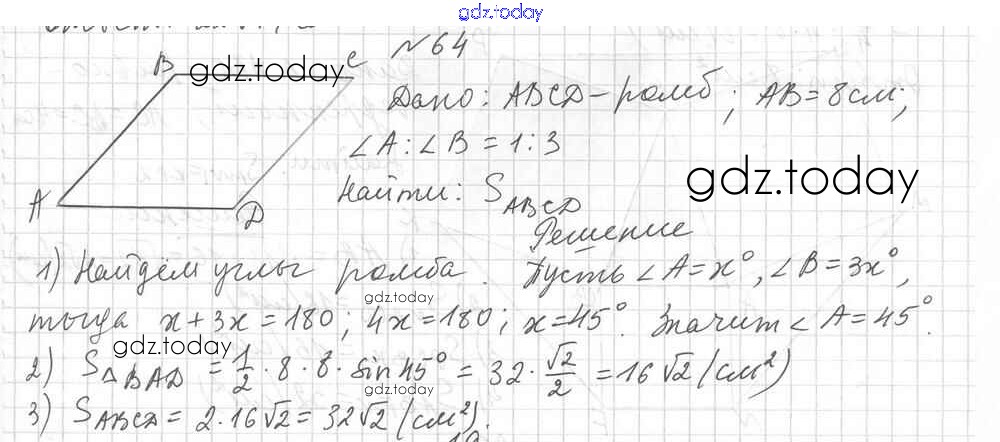 gdz.today
№64
B gdz.today C
Дано: ABCD – ромб; AB = 8 см;
∠A : ∠B = 1 : 3
gdz.today
Найти: S_ABCD
A D
Решение
1) Найдём углы ромба. Пусть ∠A = x°, ∠B = 3x°,
gdz.today
тогда x + 3x = 180; 4x = 180; x = 45°. Значит ∠A = 45°.
gdz.today
2) S_ΔBAD = 1/2 · 8 · 8 · sin 45° = 32 · √2/2 = 16√2 (см²)
gdz.today
3) S_ABCD = 2 · 16√2 = 32√2 (см²).